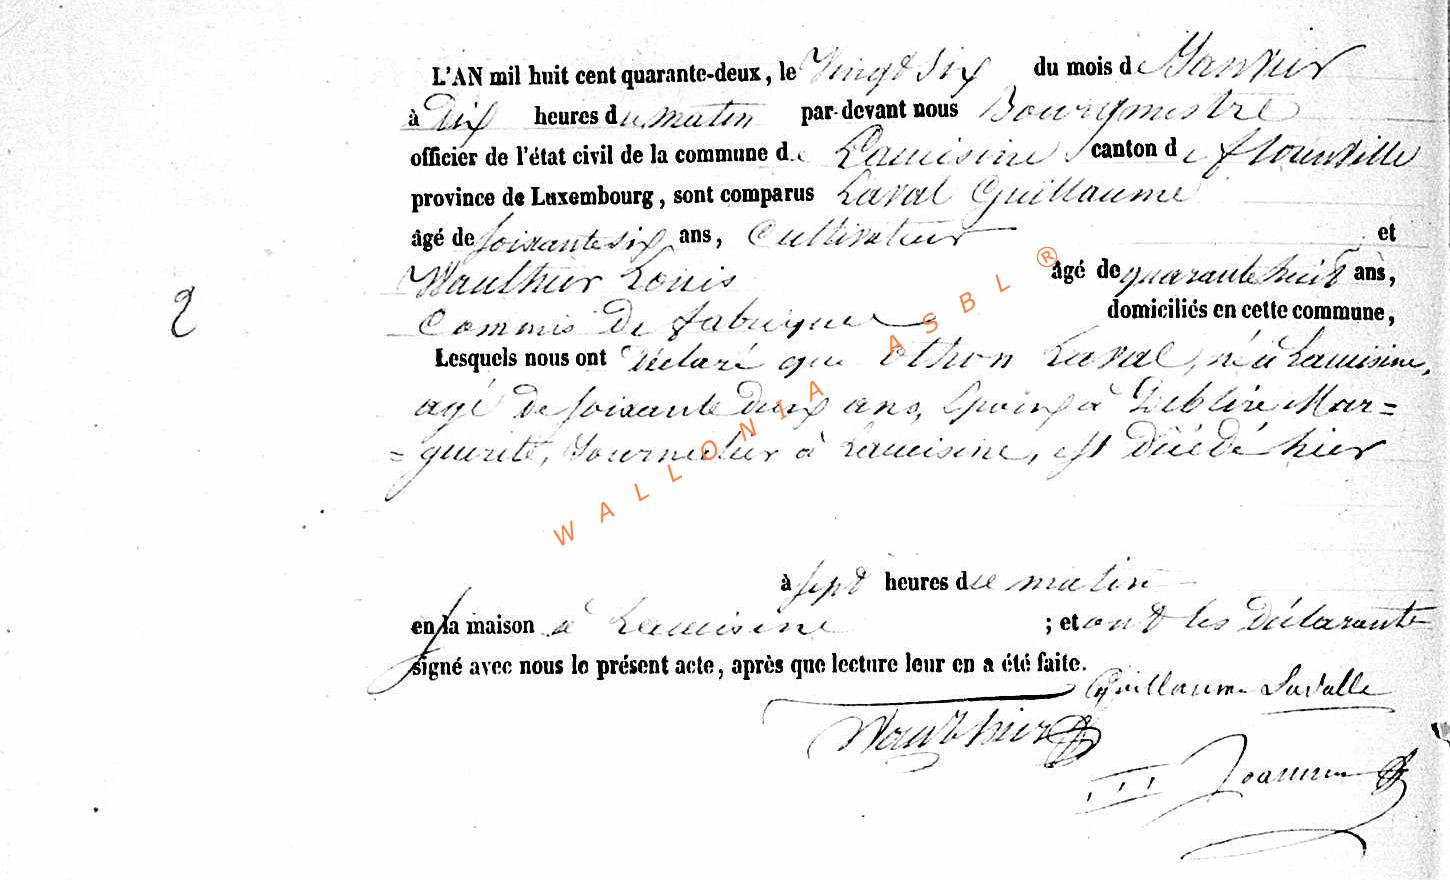 L'AN mil huit cent quarante-deux, le Vingt Six du mois de Janvier
à Dix heures du matin par-devant nous Bourgmestre
officier de l'état civil de la commune de Lacuisine canton de florenville
province de Luxembourg, sont comparus Laval Guillaume
âgé de soixante six ans, Cultivateur et
Wauthier Louis âgé de quarante huit ans,
2
Commis de fabrique domiciliés en cette commune,
Lesquels nous ont déclaré que othon Laval, né à Lacuisine,
agé de soixante deux ans, Epoux à Deblire Mar=
=guerite, Journalier à Lacuisine, est décédé hier
WALLONIA ASBL ®
à sept heures du matin
en la maison à Lacuisine ; et ont les Déclarants
signé avec nous le présent acte, après que lecture leur en a été faite.
Guillaume Lavalle
Wauthier